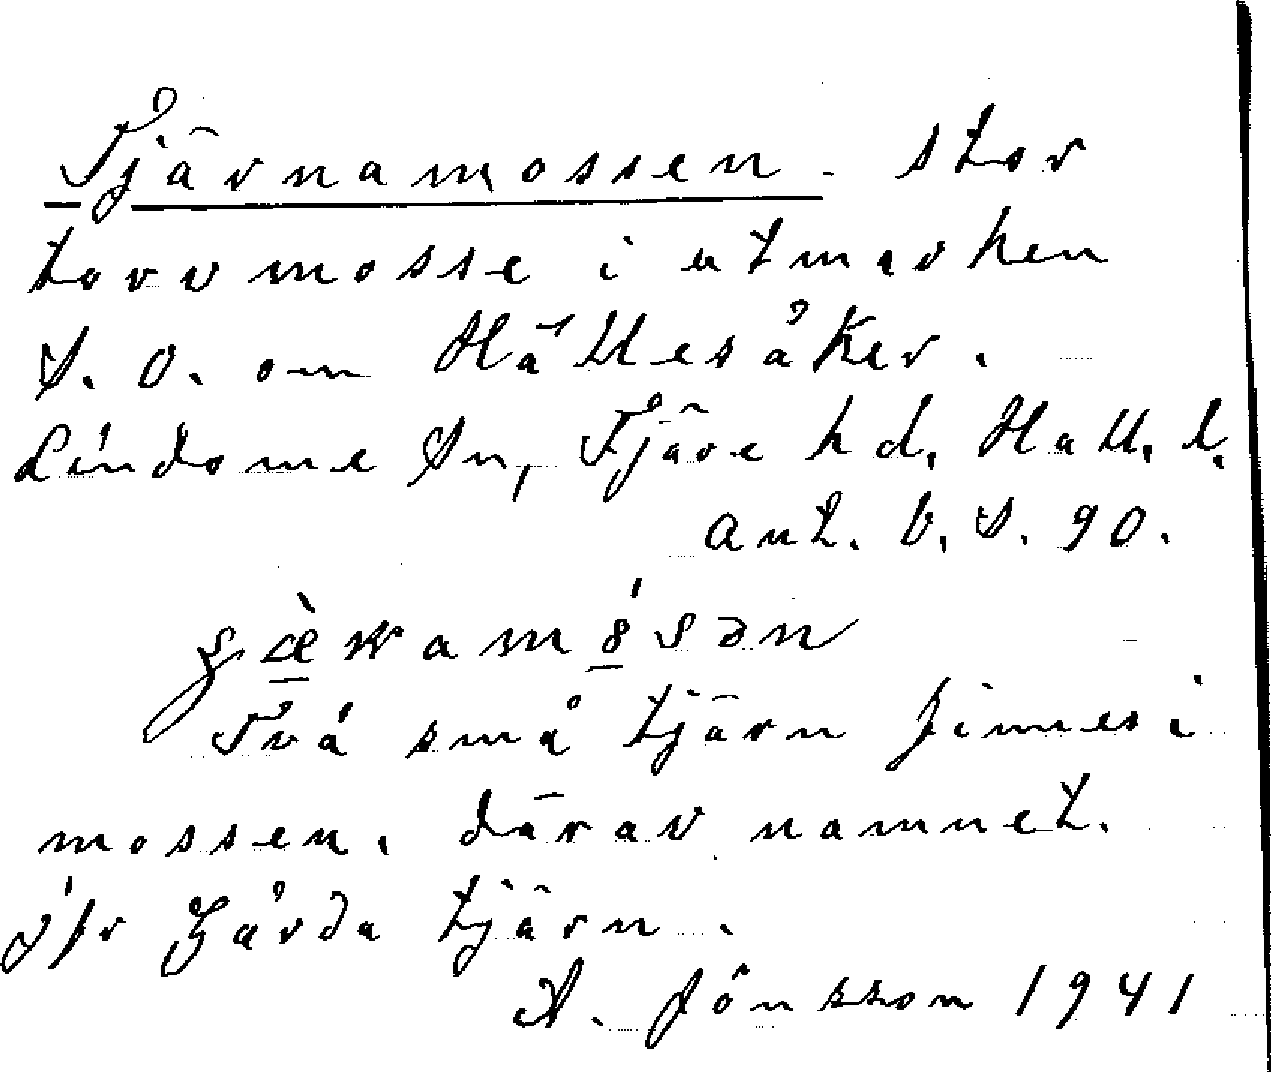 Tjärnamossen. stor
torvmosse i utmarken
S.O. om Hällesåker.
Lindome Sn, Fjäre hd, Hall. l.
ant. b. S. 90.
Två små tjärn finnes i
mossen. därav namnet.
jfr Gårda tjärn.
A. Jönsson 1941